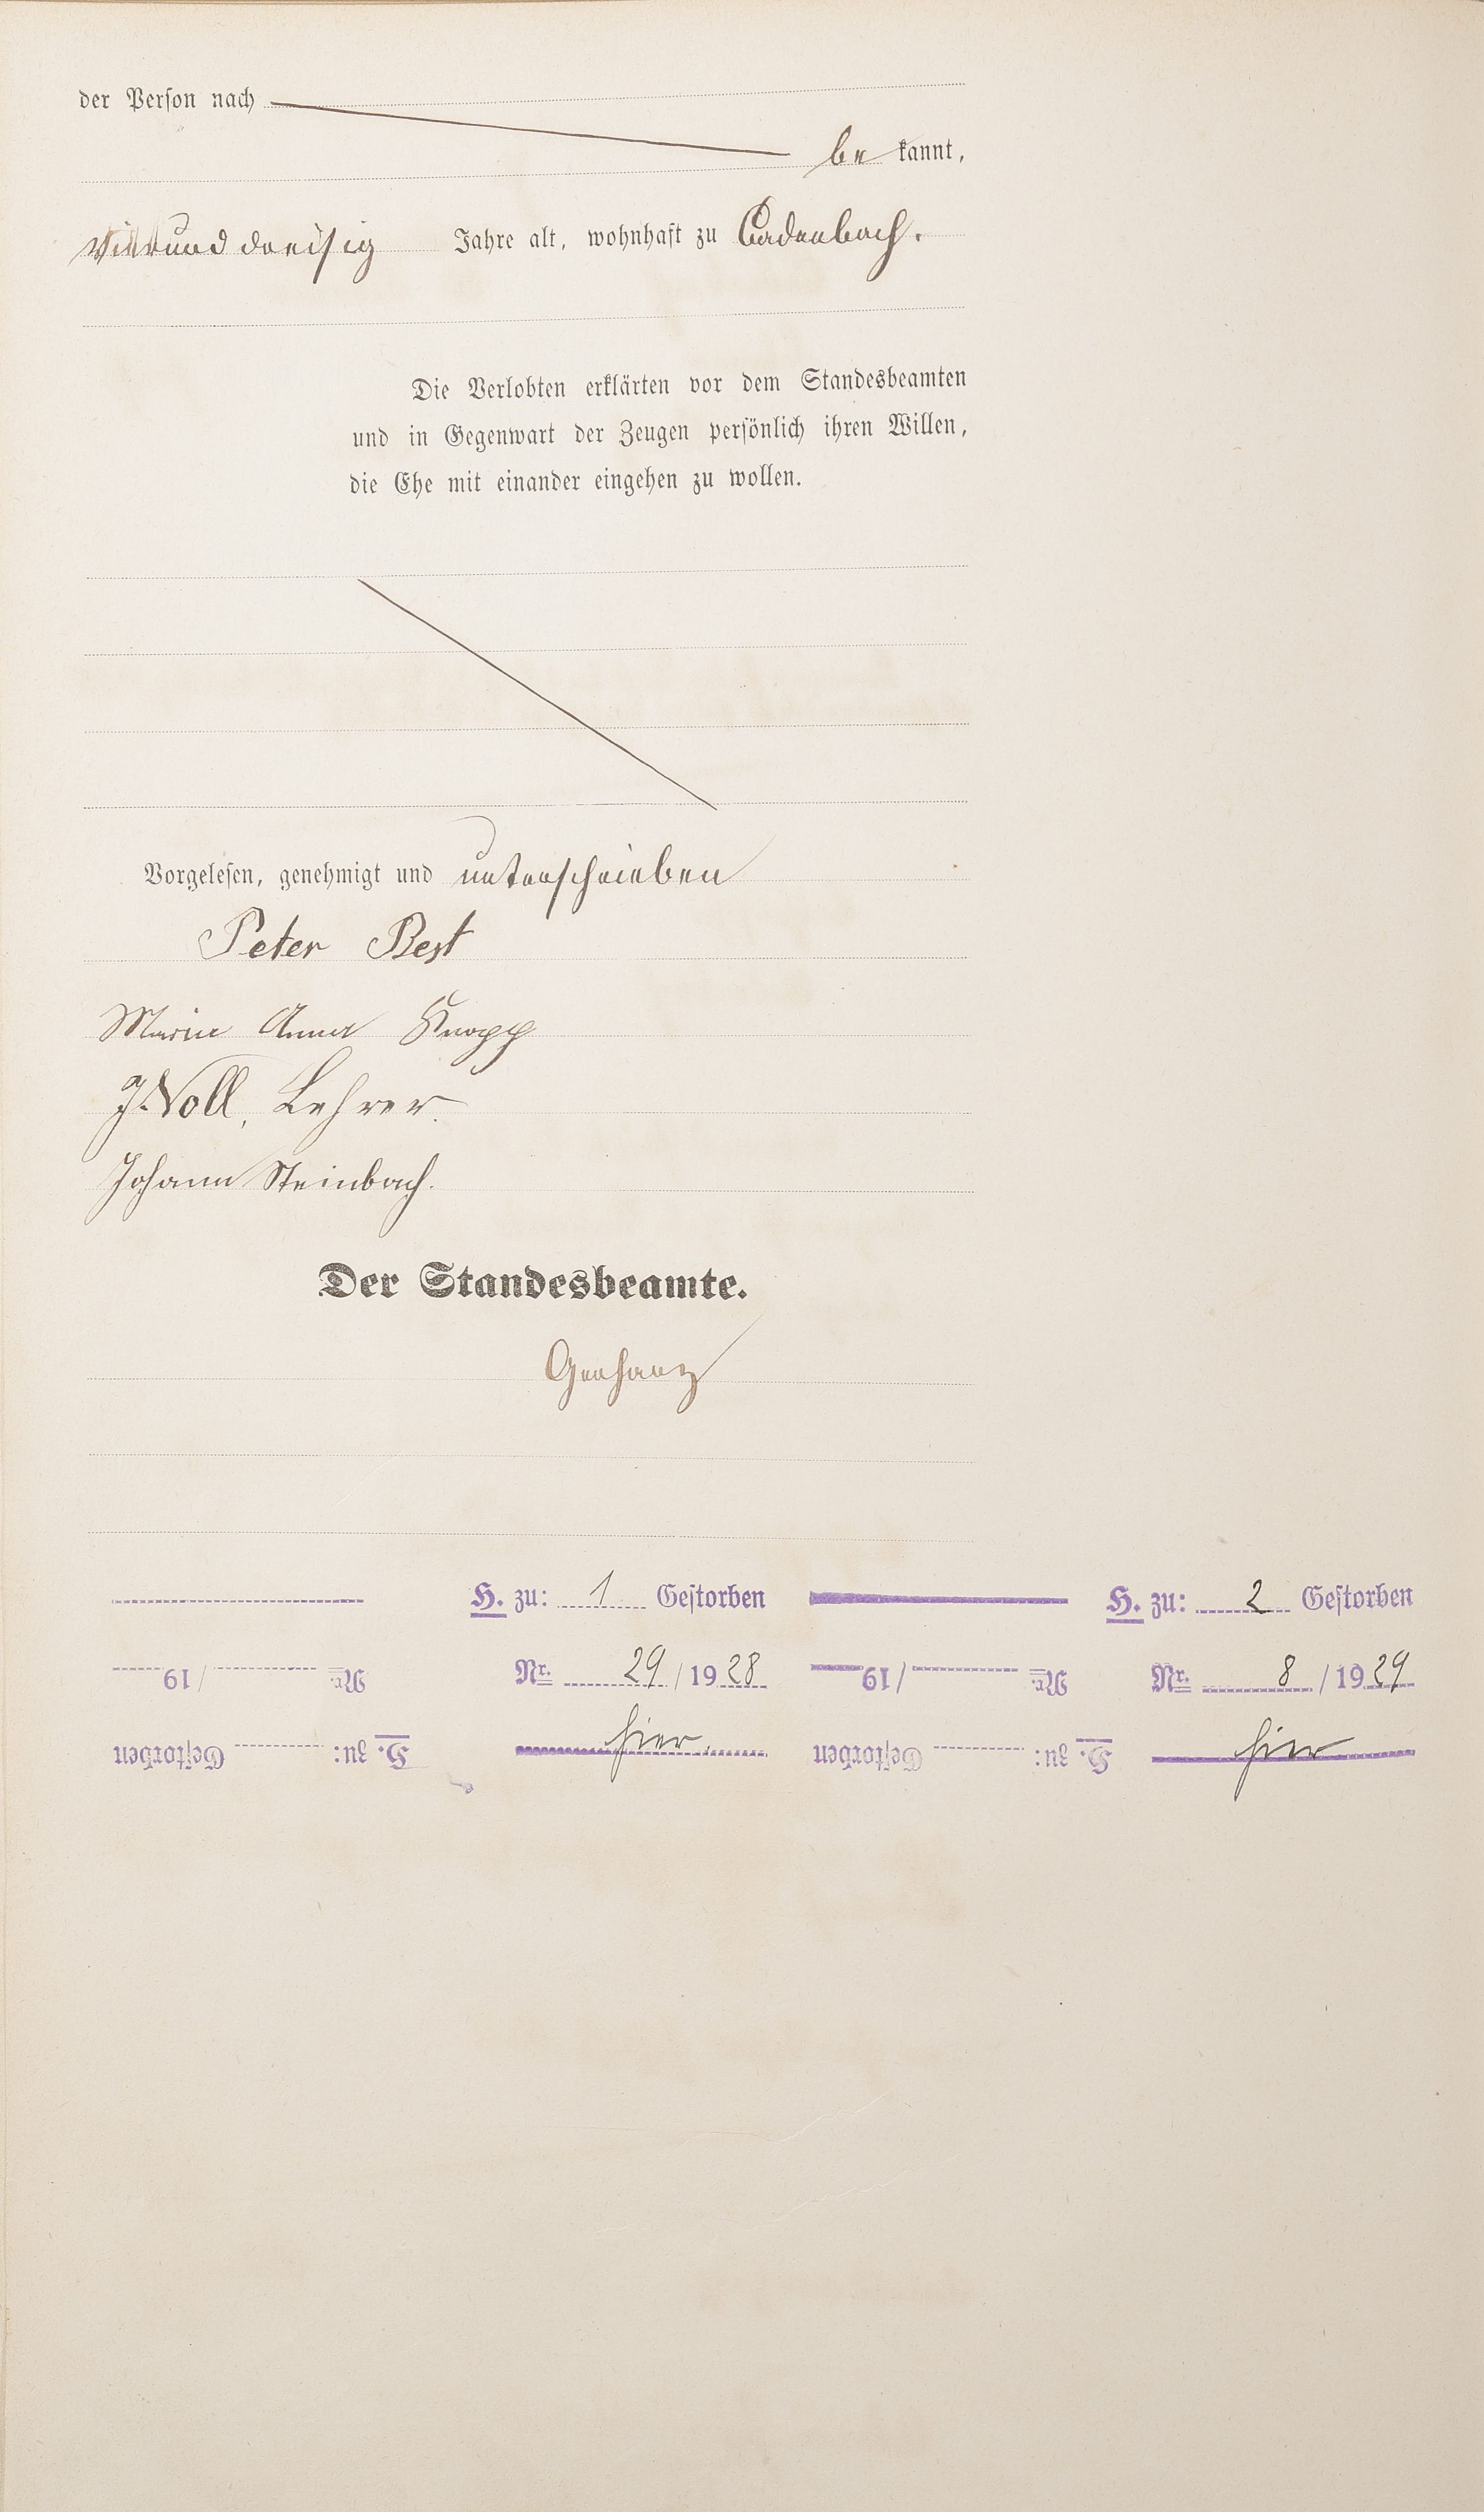 der Person nach
be kannt,
vierunddreißig Jahre alt, wohnhaft zu Cadenbach.
Die Verlobten erklärten vor dem Standesbeamten
und in Gegenwart der Zeugen persönlich ihren Willen,
die Ehe mit einander eingehen zu wollen.
Vorgelesen, genehmigt und unterschrieben
Peter Best
Marie Anna Knopp
J. Noll, Lehrer.
Johann Steinbach.
Der Standesbeamte.
Gerharz
H. zu: 1 Gestorben
Nr. 29 / 1928
hier
H. zu: 2 Gestorben
Nr. 8 / 1929
hier
H. zu: Gestorben
Nr. / 19
H. zu: Gestorben
Nr. / 19